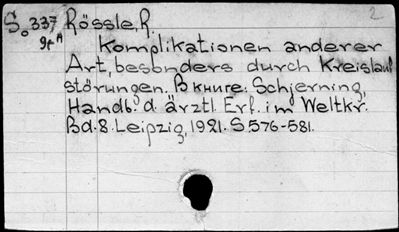 2
S.337 Rössle, R.
Komplikationen anderer
Art, besonders durch Kreislauf
störungen. В книге: Schjerning,
Handb. d. ärztl. Erf. im Weltkr.
Bd. 8. Leipzig, 1921. S. 576-581.